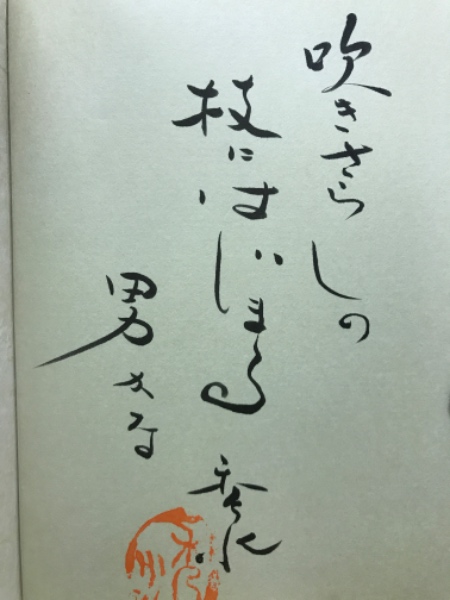 吹きさらしの
枝にはじまる
男かな